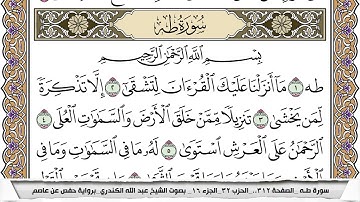 سُورَةُ طه
بِسْمِ اللَّهِ الرَّحْمَٰنِ الرَّحِيمِ
طه ١ مَا أَنزَلْنَا عَلَيْكَ الْقُرْءَانَ لِتَشْقَىٰ ٢ إِلَّا تَذْكِرَةً
لِّمَن يَخْشَىٰ ٣ تَنزِيلًا مِّمَّنْ خَلَقَ الْأَرْضَ وَالسَّمَٰوَٰتِ الْعُلَى ٤
الرَّحْمَٰنُ عَلَى الْعَرْشِ اسْتَوَىٰ ٥ لَهُ مَا فِي السَّمَٰوَٰتِ وَمَا فِي
سورة طـه _ الصفحة ٣١٢ _ الحزب ٣٢_ الجزء ١٦_ بصوت الشيخ عبد الله الكندري _برواية حفص عن عاصم